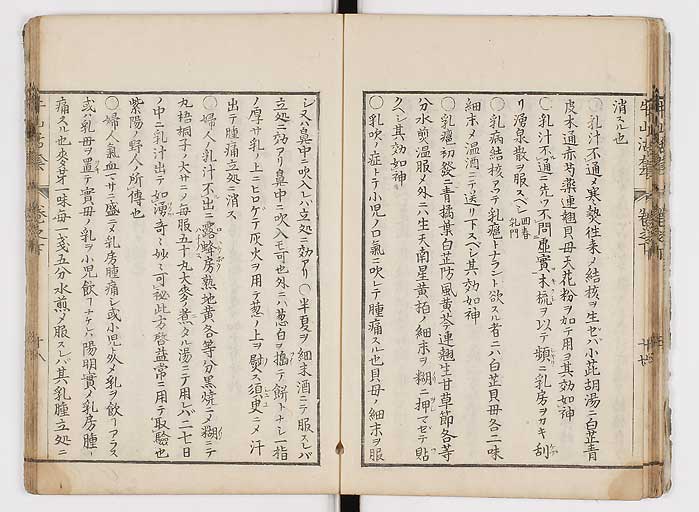 消スル也
○乳汁不通メ寒熱徃来メ結核ヲ生セバ小茈胡湯ニ白芷青
皮木通赤芍薬連翹貝母天花粉ヲ加テ用ヨ其効如神
○乳汁不通ニ先ツ不問虚實木梳ヲ以テ頻ニ乳房ヲカキ刮
リ湧泉散ヲ服スベシ四春乳門
○乳病結核アテ乳癰トナラント欲スル者ニハ白芷貝母各二味
細末メ温酒ニテ送リ下スベシ其効如神
○乳癰初發ニ青橘葉白芷防風黄芩連翹生甘草節各等
分水煎温服メ外ニハ生天南星黄柏ノ細末ヲ糊ニ押マゼテ貼
クベシ其効如神
○乳吹ノ症トテ小児ノ口氣ニ吹レテ腫痛スル也貝母ノ細末ヲ服
シ又ハ鼻中ニ吹入レバ立処ニ効アリ○半夏ヲ細末酒ニテ服スレバ
立処ニ効アリ鼻中ニ吹入モ可也外ニハ葱白ヲ擣テ餅トナシ一指
ノ厚サ乳ノ上ニヒロゲテ灰火ヲ用テ葱ノ上ヲ熨ス須臾ニメ汗
出テ腫痛立処ニ消ス
○婦人ノ乳汁不出ニ露蜂房熟地黄各等分黒焼ニメ糊ニテ
丸梧桐子ノ大サニメ毎服五十丸大麥ノ煮タル湯ニテ用レバ二七日
ノ中ニ乳汁出テ如湧奇々妙々可秘此方啓益常ニ用テ取驗也
紫陽野人所傳也
○婦人氣血マサニ盛ニメ乳房腫痛シ或小児死メ乳ヲ飲フアラス
或ハ乳母ヲ置テ實母ノ乳ヲ小児飲フナケレバ陽明實メ乳房腫
痛スル也麥芽一味毎一戔五分水煎メ服スレバ其乳腫立処ニ